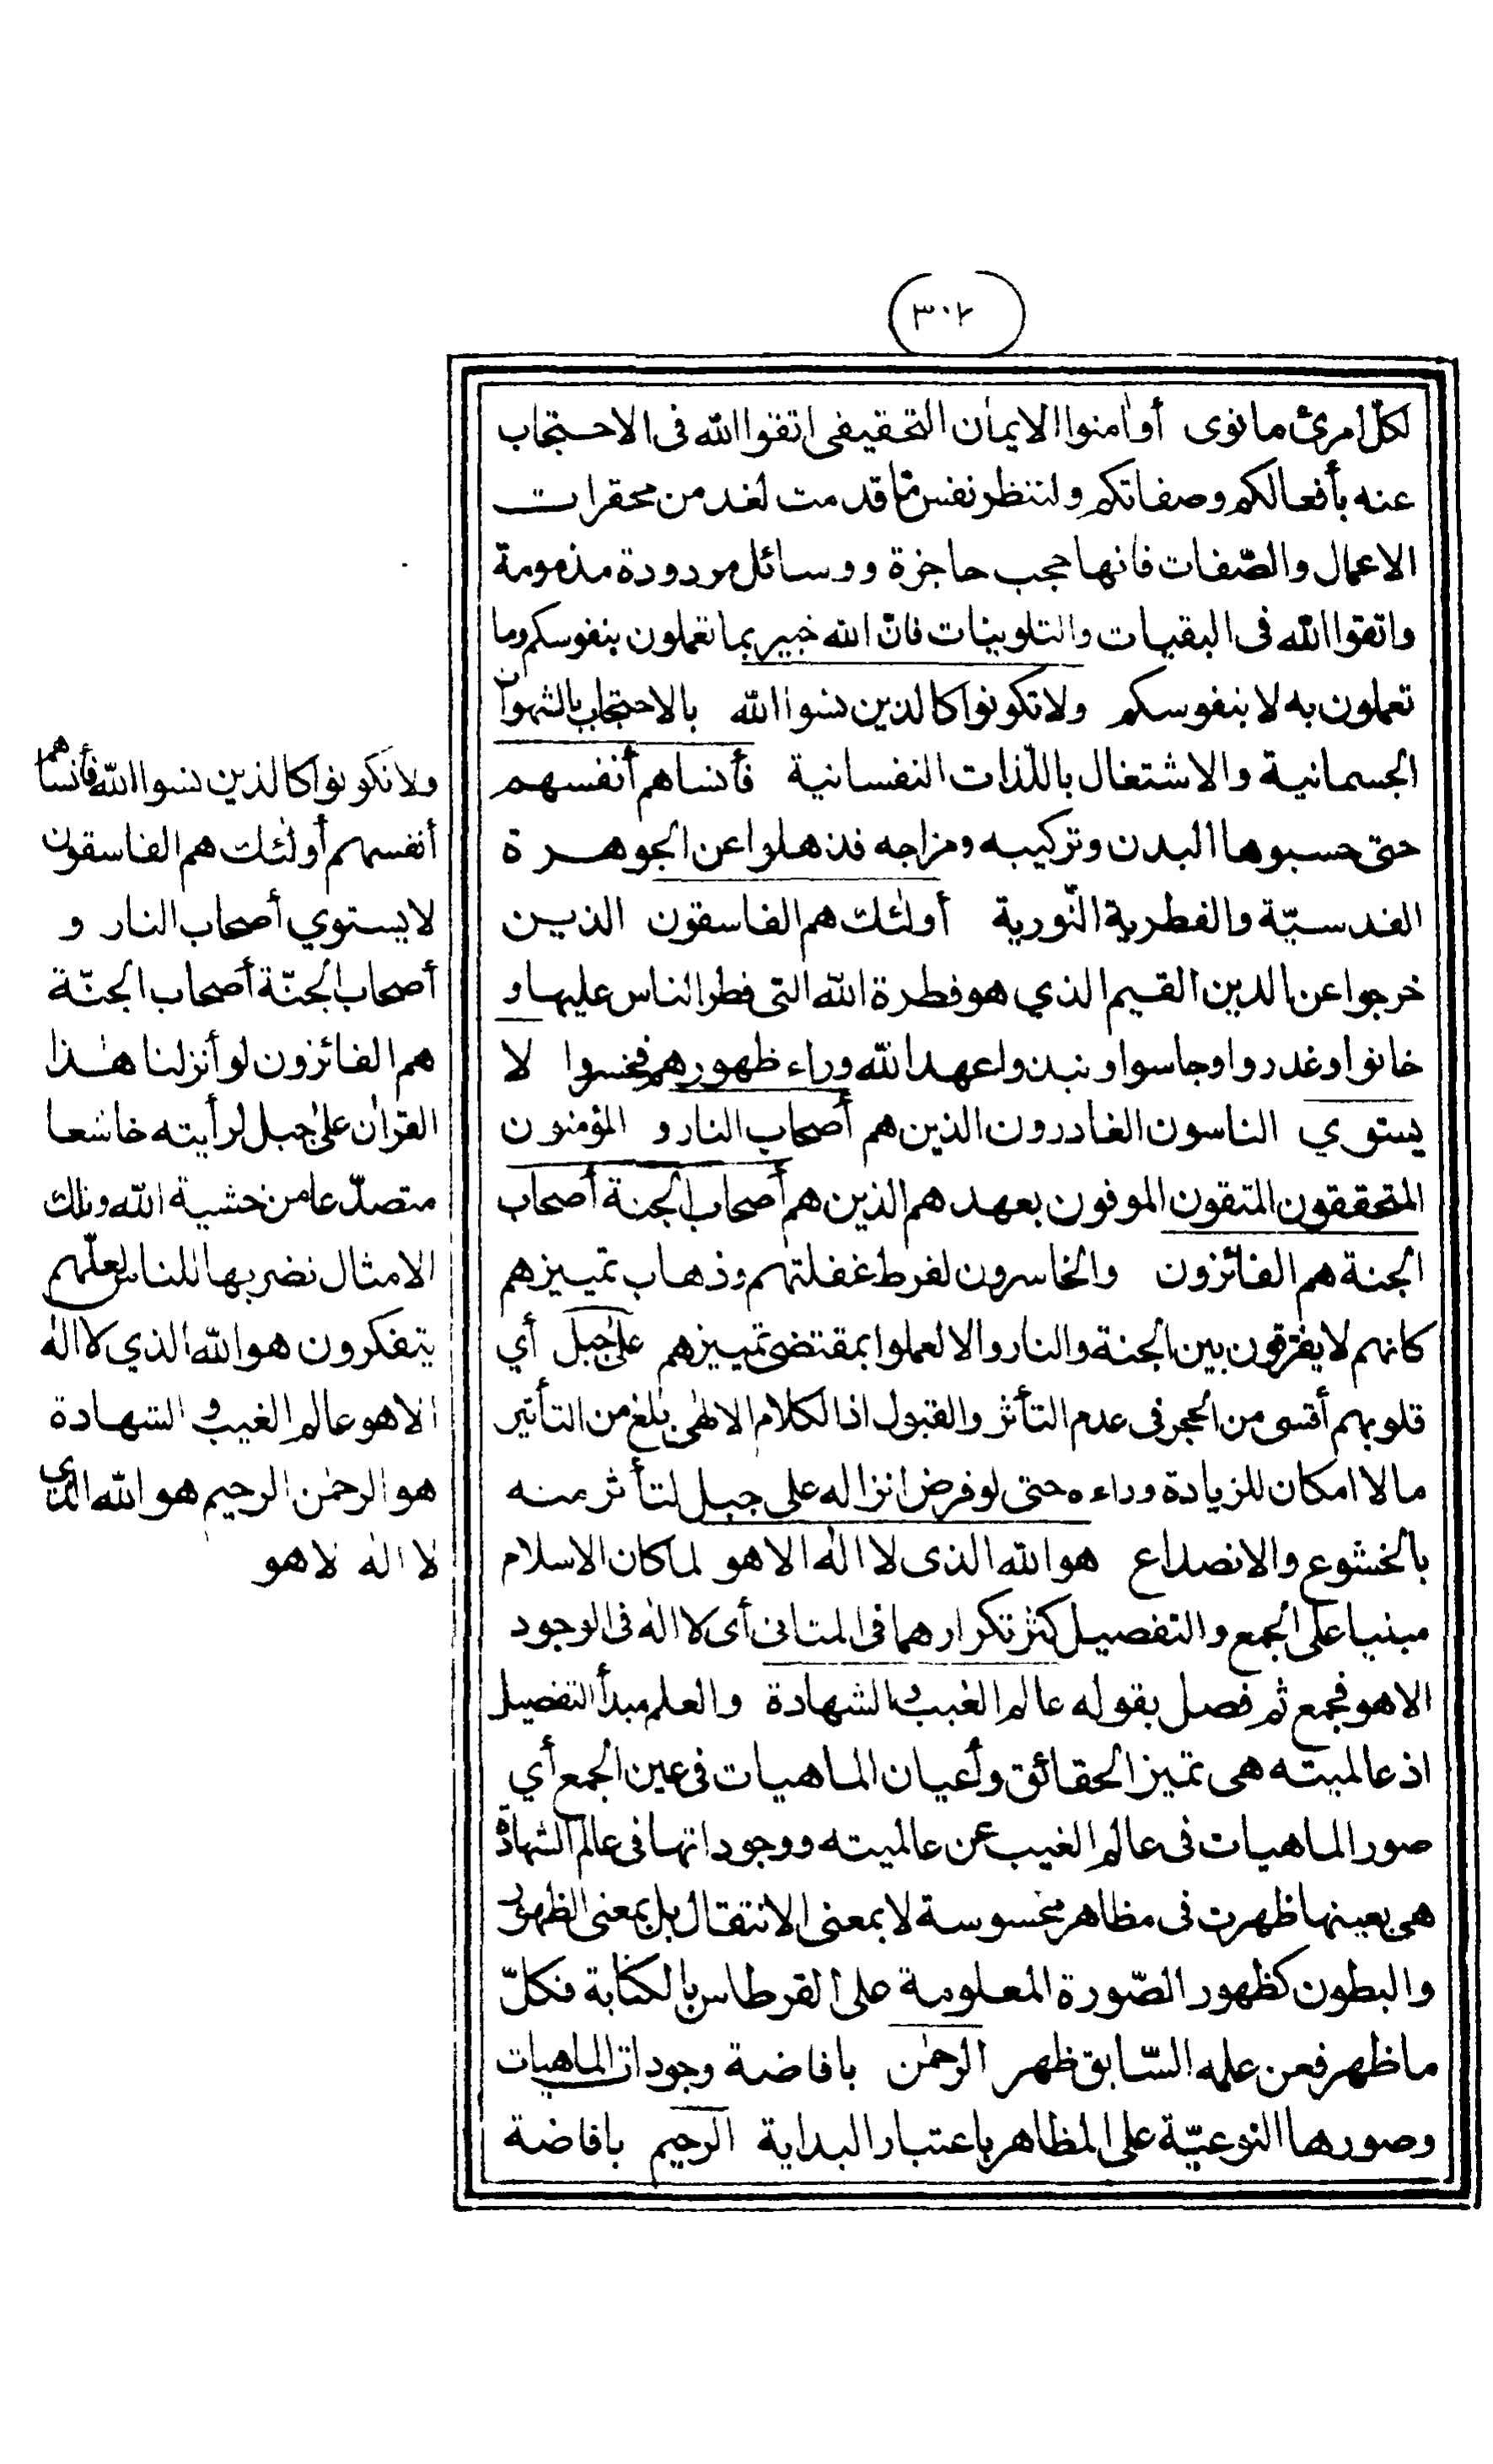 (٣٠٢)
لكلّ امرئ ما نوى أو اٰمنوا الايمان التحقيقى اتقوا الله فى الاحتجاب
عنه بأفعالكم وصفاتكم ولتنظر نفس ما قدمت لغد من محقرات
الاعمال والصّفات فانها حجب حاجزة ووسائل مردودة مذمومة
واتقوا الله فى البقيات والتلوينات فانّ الله خبير بما تعملون بنفوسكم وما
تعملون به لا بنفوسكم ولا تكونوا كالذين نسوا الله بالاحتجاب بالشهوات
الجسمانية والاشتغال باللّذات النفسانية فأنساهم أنفسهم
حتى حسبوها البدن وتركيبه ومزاجه فذهلوا عن الجوهرة
القدسيّة والفطرية النّورية أولٰئك هم الفاسقون الذين
خرجوا عن الدين القيم الذي هو فطرة الله التى فطر الناس عليها و
خانوا وغدروا وجاسوا ونبذوا عهد الله وراء ظهورهم فخسروا لا
يستوي الناسون الغادرون الذين هم أصحاب النار و المؤمنون
المتحققون المتقون الموفون بعهدهم الذين هم أصحاب الجنة أصحاب
الجنة هم الفائزون والخاسرون لفرط غفلتهم وذهاب تمييزهم
كانهم لا يفرّقون بين الجنة والنار والا لعملوا بمقتضى تمييزهم على جبل أي
قلوبهم أقسى من الحجر فى عدم التأثر والقبول اذ الكلام الالهٰى بلغ من التأثير
ما لا امكان للزيادة وراءه حتى لو فرض انزاله على جبل لتأثر منه
بالخشوع والانصداع هو الله الذى لا الٰه الا هو لما كان الاسلام
مبنيا على الجمع والتفصيل كثر تكرارهما فى المثانى أى لا اله فى الوجود
الا هو فجمع ثم فصل بقوله عالم الغيب والشهادة والعلم مبدأ التفصيل
اذ عالميته هى تميز الحقائق وأعيان الماهيات فى عين الجمع أي
صور الماهيات فى عالم الغيب عن عالميته ووجوداتها فى عالم الشهادة
هى بعينها ظهرت فى مظاهر محسوسة لا بمعنى الانتقال بل بمعنى الظهور
والبطون كظهور الصّورة المعلومة على القرطاس بالكتابة فكلّ
ما ظهر فعن علمه السّابق ظهر الرحمٰن بافاضة وجودات الماهيات
وصورها النوعيّة على المظاهر باعتبار البداية الرحيم بافاضة
ولا تكونوا كالذين نسوا الله فأنساهم
أنفسهم أولٰئك هم الفاسقون
لا يستوي أصحاب النار و
أصحاب الجنّة أصحاب الجنّة
هم الفائزون لو أنزلنا هٰذا
القراٰن على جبل لرأيته خاشعا
متصدّعا من خشية الله وتلك
الامثال نضربها للناس لعلّهم
يتفكرون هو الله الذي لا الٰه
الا هو عالم الغيب و الشهادة
هو الرحمٰن الرحيم هو الله الذي
لا الٰه لا هو